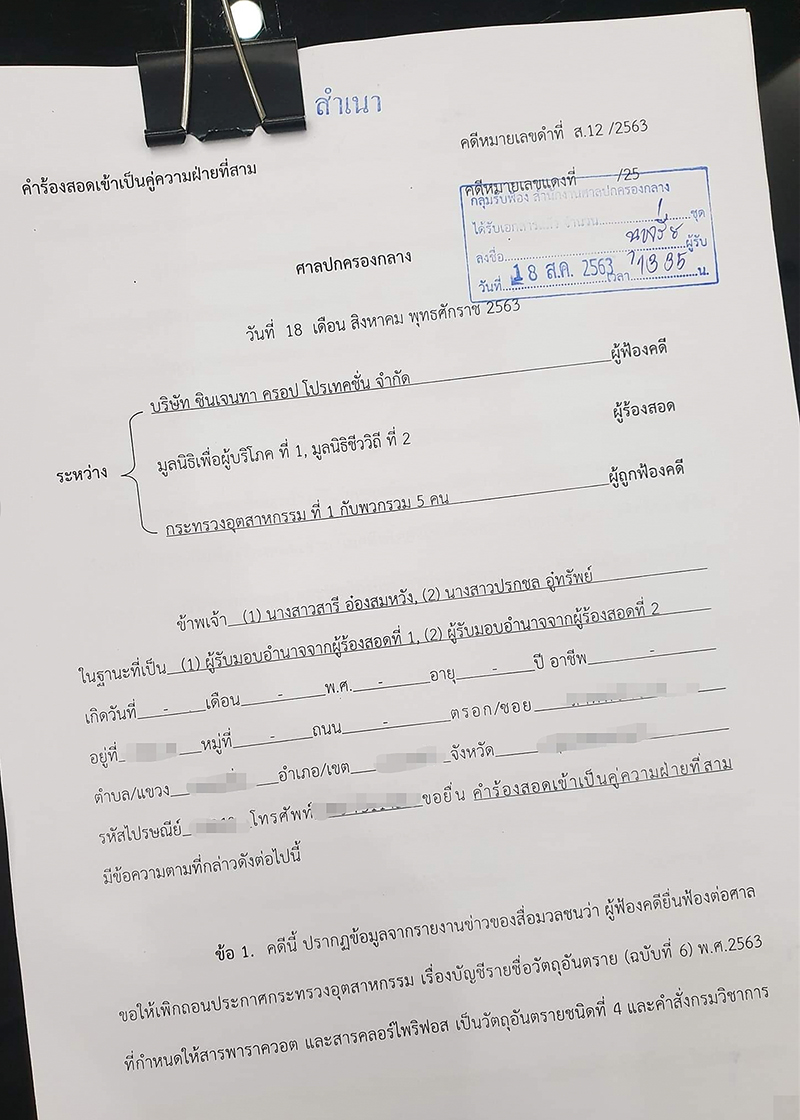 สำเนา
คดีหมายเลขดำที่ ส.12 /2563
คำร้องสอดเข้าเป็นคู่ความฝ่ายที่สาม
คดีหมายเลขแดงที่ /25
กลุ่มรับฟ้อง สำนักงานศาลปกครองกลาง
ได้รับเอกสาร จำนวน 1 ชุด
ลงชื่อ ผู้รับ
วันที่ 18 ส.ค. 2563 เวลา 1335 น.
ศาลปกครองกลาง
วันที่ 18 เดือน สิงหาคม พุทธศักราช 2563
บริษัท ซินเจนทา ครอป โปรเทคชั่น จำกัด ผู้ฟ้องคดี
ระหว่าง มูลนิธิเพื่อผู้บริโภค ที่ 1, มูลนิธิชีววิถี ที่ 2 ผู้ร้องสอด
กระทรวงอุตสาหกรรม ที่ 1 กับพวกรวม 5 คน ผู้ถูกฟ้องคดี
ข้าพเจ้า (1) นางสาวสารี อ๋องสมหวัง, (2) นางสาวปรกชล อู๋ทรัพย์
ในฐานะที่เป็น (1) ผู้รับมอบอำนาจจากผู้ร้องสอดที่ 1, (2) ผู้รับมอบอำนาจจากผู้ร้องสอดที่ 2
เกิดวันที่ - เดือน - พ.ศ. - อายุ - ปี อาชีพ -
อยู่ที่ หมู่ที่ - ถนน - ตรอก/ซอย
ตำบล/แขวง อำเภอ/เขต จังหวัด
รหัสไปรษณีย์ โทรศัพท์ ขอยื่น คำร้องสอดเข้าเป็นคู่ความฝ่ายที่สาม
มีข้อความตามที่กล่าวดังต่อไปนี้
ข้อ 1. คดีนี้ ปรากฏข้อมูลจากรายงานข่าวของสื่อมวลชนว่า ผู้ฟ้องคดียื่นฟ้องต่อศาล
ขอให้เพิกถอนประกาศกระทรวงอุตสาหกรรม เรื่องบัญชีรายชื่อวัตถุอันตราย (ฉบับที่ 6) พ.ศ.2563
ที่กำหนดให้สารพาราควอต และสารคลอร์ไพริฟอส เป็นวัตถุอันตรายชนิดที่ 4 และคำสั่งกรมวิชาการ